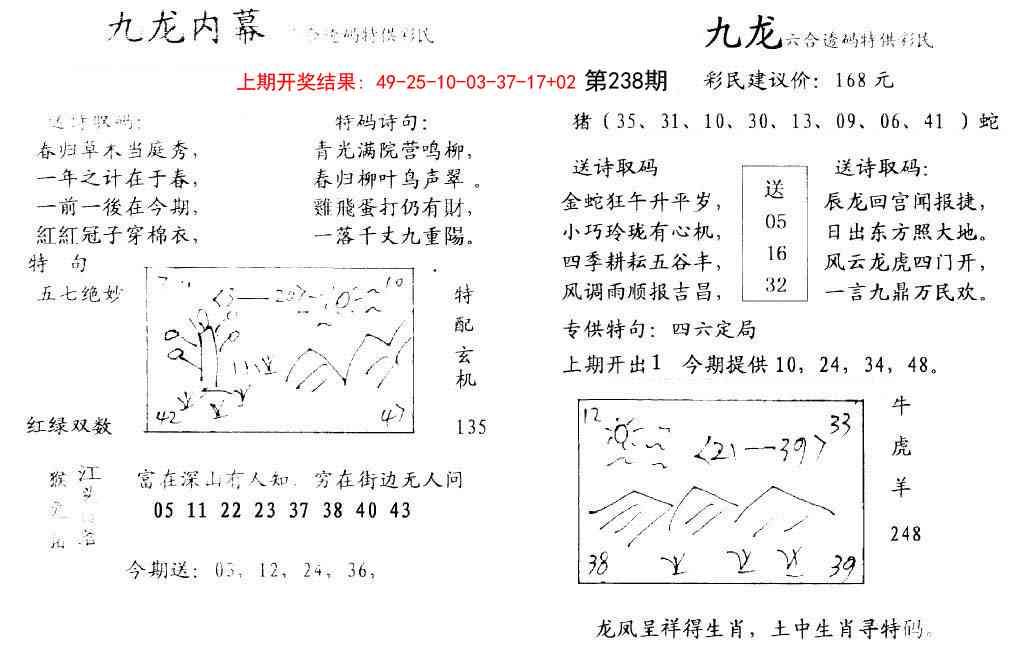 九龙内幕 合透码特供彩民
九龙六合透码特供彩民
上期开奖结果：49-25-10-03-37-17+02 第238期 彩民建议价：168元
送诗取码：
春归草木当庭秀，
一年之计在于春，
一前一後在今期，
紅紅冠子穿棉衣，
特码诗句：
青光满院营鸣柳，
春归柳叶鸟声翠。
雞飛蛋打仍有財，
一落千丈九重陽。
特 句
五七绝妙
红绿双数
7
10
〈3—20〉
42
47
特
配
玄
机
135
猴
江
富在深山有人知．穷在街边无人问
05 11 22 23 37 38 40 43
今期送：03，12，24，36，
猪（35、31、10、30、13、09、06、41 ）蛇
送诗取码
金蛇狂午升平岁，
小巧玲珑有心机，
四季耕耘五谷丰，
风调雨顺报吉昌，
送
05
16
32
送诗取码：
辰龙回宫闻报捷，
日出东方照大地。
风云龙虎四门开，
一言九鼎万民欢。
专供特句：四六定局
上期开出1 今期提供10，24，34，48。
12
33
〈21—39〉
38
39
牛
虎
羊
248
龙凤呈祥得生肖，土中生肖寻特码。